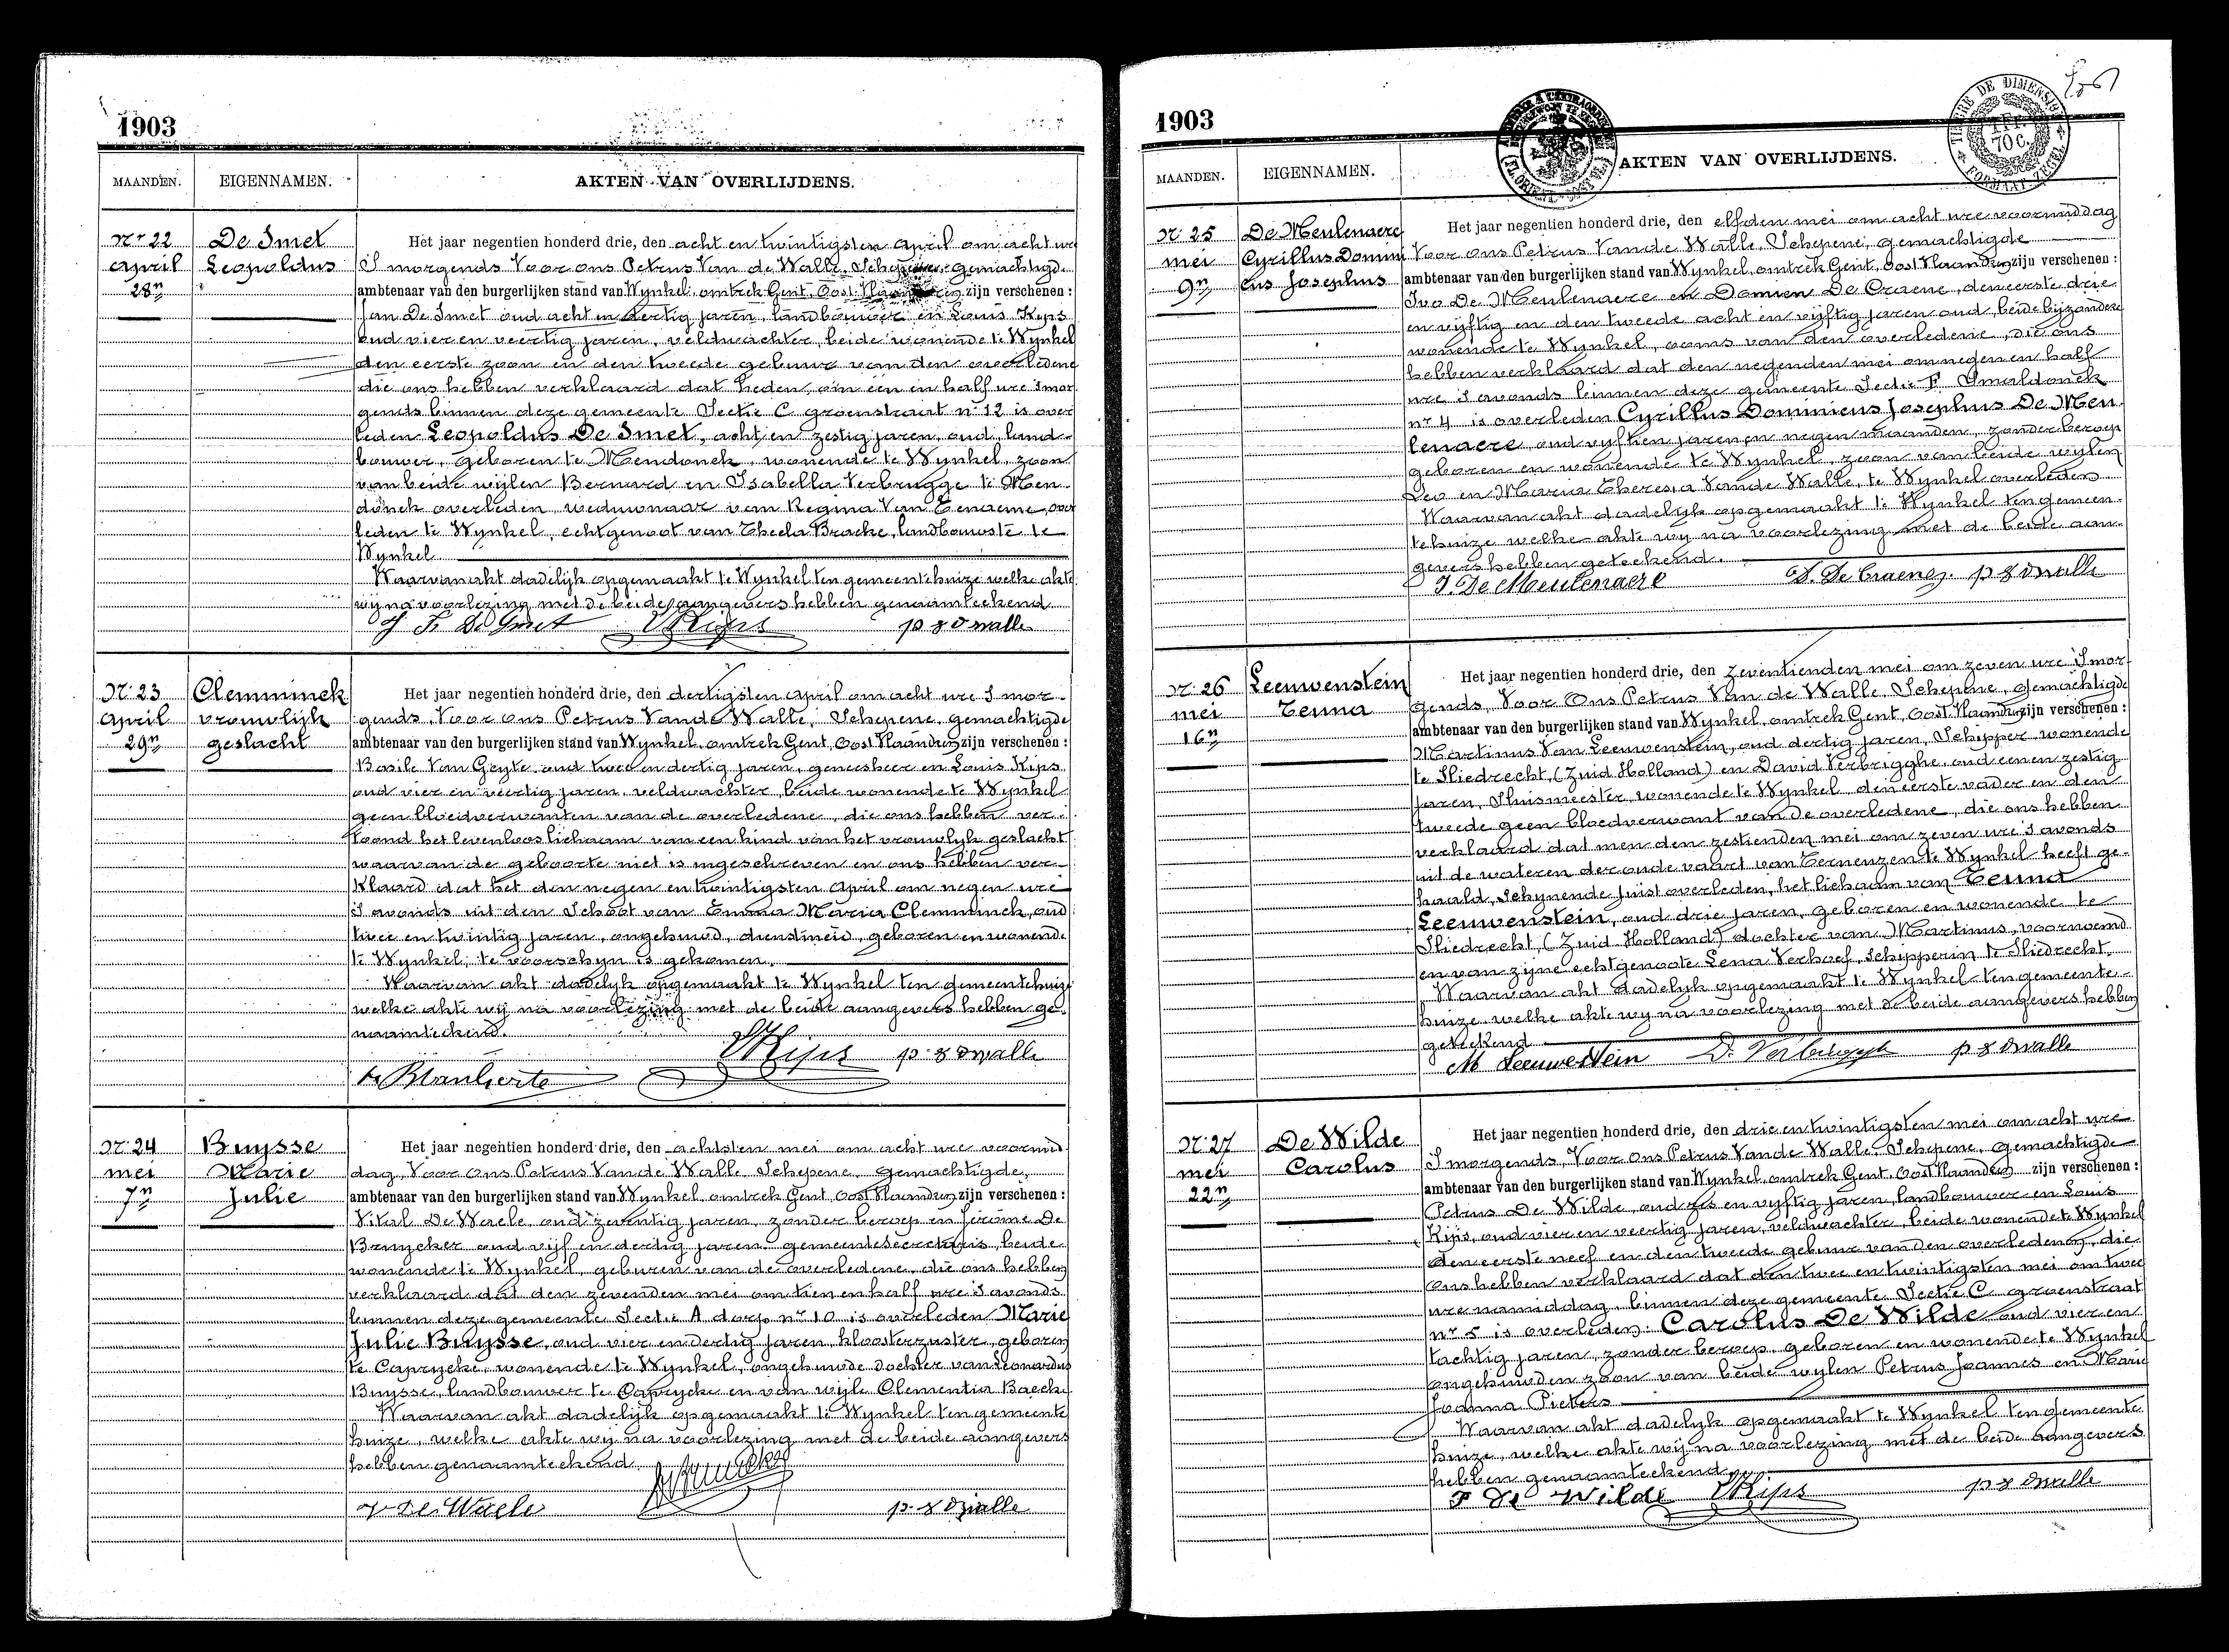 1903
MAANDEN. EIGENNAMEN. AKTEN VAN OVERLIJDENS.
Nr 22 De Smet
April Leopoldus
28n
Het jaar negentien honderd drie, den acht en twintigsten April om acht ure
S morgends Voor ons Petrus Van de Walle, Schepene, gemachtigde
ambtenaar van den burgerlijken stand van Wynkel, omtrek Gent, Oost Vlaanderen zijn verschenen :
Jan De Smet oud acht en dertig jaren, landbouwer en Louis Kips
oud vier en veertig jaren, veldwachter, beide wonende te Wynkel
den eerste zoon en den tweede gebuur van den overledene
die ons hebben verklaard dat heden, om een en half ure smor
gends binnen deze gemeente Sectie C groenstraat nr 12 is over
leden Leopoldus De Smet, acht en zestig jaren, oud, land-
bouwer, geboren te Mendonck, wonende te Wynkel, zoon
van beide wijlen Bernard en Isabella Verbrugge te Men-
donck overleden, weduwnaar van Regina Van Eenaeme, over
leden te Wynkel, echtgenoot van Thecla Bracke, landbouwste te
Wynkel
Waarvan akt dadelijk opgemaakt te Wynkel ten gemeentehuize welke akte
wij na voorlezing met de beide aangevers hebben genaamteekend
De Smet Kips p vd walle
Nr 23 Clemminck
April vrouwlijk
29n geslacht
Het jaar negentien honderd drie, den dertigsten April om acht ure S mor-
gends, Voor ons Petrus Vande Walle, Schepene, gemachtigde
ambtenaar van den burgerlijken stand van Wynkel, omtrek Gent, Oost Vlaanderen zijn verschenen :
Basile Van Geyte, oud twee en dertig jaren, geneesheer en Louis Kips
oud vier en veertig jaren, veldwachter, beide wonende te Wynkel
geen bloedverwanten van de overledene, die ons hebben ver-
toond het levenloos lichaam van een kind van het vrouwlijk geslacht
waarvan de geboorte niet is ingeschreven en ons hebben ver-
klaard dat het den negen en twintigsten April om negen ure
s avonds uit den Schoot van Emma Maria Clemminck, oud
twee en twintig jaren, ongehuwd, dienstmeid, geboren en wonende
te Wynkel, te voorschyn is gekomen.
Waarvan akt dadelyk opgemaakt te Wynkel ten gemeentehuize
welke akte wij na voorlezing met de beide aangevers hebben ge-
naamteekend.
Kips p. vd walle
Nr 24 Buysse
mei Marie
7n Julie
Het jaar negentien honderd drie, den achtsten mei om acht ure voormid
dag, Voor ons Petrus Vande Walle Schepene, gemachtigde,
ambtenaar van den burgerlijken stand van Wynkel, omtrek Gent, Oost Vlaanderen zijn verschenen :
Vital De Waele, oud zeventig jaren, zonder beroep en Jérome De
Bruycker oud vijf en dertig jaren, gemeentesecretaris, beide
wonende te Wynkel, geburen van de overledene, die ons hebben
verklaard dat den zevenden mei om tien en half ure s avonds
binnen deze gemeente Sectie A dorp nr 10 is overleden Marie
Julie Buysse, oud vier en dertig jaren, kloosterzuster, geboren
te Caprycke, wonende te Wynkel, ongehuwde dochter van Leonardus
Buysse, landbouwer te Caprycke en van wijle Clementia Baecke
Waarvan akt dadelijk opgemaakt te Wynkel ten gemeente
huize, welke akte wij na voorlezing met de beide aangevers
hebben genaamteekend.
V De Waele p. vd walle
1903
MAANDEN. EIGENNAMEN. AKTEN VAN OVERLIJDENS.
TIMBRE DE DIMENSION
1 FR. 70 C.
FORMAAT-ZEGEL
Nr 25 De Meulenaere
mei Cyrillus Domini
9n cus Josephus
Het jaar negentien honderd drie, den elfden mei om acht ure voormiddag
Voor ons Petrus Vande Walle, Schepene, gemachtigde
ambtenaar van den burgerlijken stand van Wynkel, omtrek Gent, Oost Vlaanderen zijn verschenen :
Ivo De Meulenaere en Damien De Craene, den eerste drie
en vyftig en den tweede acht en vyftig jaren oud, beide byzondere
wonende te Wynkel, ooms van den overledene, die ons
hebben verklaard dat den negenden mei om negen en half
ure s avonds binnen deze gemeente Sectie F Smaldonck
nr 4 is overleden Cyrillus Dominicus Josephus De Meu
lenaere oud vyftien jaren en negen maanden, zonder beroep
geboren en wonende te Wynkel, zoon van beide wylen
Leo en Maria Theresia Vande Walle, te Wynkel overleden
Waarvan akt dadelyk opgemaakt te Wynkel ten gemeen-
tehuize welke akte wy na voorlezing met de beide aan-
gevers hebben geteekend.
I. De Meulenaere D. De Craene p vd walle
Nr 26 Leeuwenstein
mei Teuna
16n
Het jaar negentien honderd drie, den zeventienden mei om zeven ure S mor-
gends, Voor Ons Petrus Van de Walle, Schepene, gemachtigde
ambtenaar van den burgerlijken stand van Wynkel, omtrek Gent, Oost Vlaanderen zijn verschenen :
Martinus Van Leeuwenstein, oud dertig jaren, Schipper wonende
te Sliedrecht, (Zuid Holland) en David Verbrigghe, oud een en zestig
jaren, Sluismeester, wonende te Wynkel, den eerste vader en den
tweede geen bloedverwant van de overledene, die ons hebben
verklaard dat men den zestienden mei om zeven ure s avonds
uit de wateren der oude vaart van Terneuzen te Wynkel heeft ge-
haald, schynende juist overleden, het lichaam van Teuna
Leeuwenstein, oud drie jaren, geboren en wonende te
Sliedrecht, (Zuid Holland) dochter van Martinus, voornoemd
en van zijne echtgenoote Lena Verhoef, schipperin te Sliedrecht.
Waarvan akt dadelyk opgemaakt te Wynkel ten gemeente-
huize welke akte wy na voorlezing met de beide aangevers hebben
geteekend
M Leeuwestein p vd walle
Nr 27 De Wilde
mei Carolus
22n
Het jaar negentien honderd drie, den drie en twintigsten mei om acht ure
S morgends, Voor Ons Petrus Vande Walle Schepene, gemachtigde
ambtenaar van den burgerlijken stand van Wynkel, omtrek Gent, Oost Vlaanderen zijn verschenen :
Petrus De Wilde, oud zes en vyftig jaren, landbouwer en Louis
Kips, oud vier en veertig jaren, veldwachter, beide wonende te Wynkel
den eerste neef en den tweede gebuur van den overledene, die
ons hebben verklaard dat den twee en twintigsten mei om twee
ure namiddag, binnen deze gemeente Sectie C groenstraat
nr 5 is overleden: Carolus De Wilde oud vier en
tachtig jaren, zonder beroep, geboren en wonende te Wynkel
ongehuwden zoon van beide wylen Petrus Joannes en Marie
Joanna Pieters
Waarvan akt dadelyk opgemaakt te Wynkel ten gemeente
huize, welke akte wij na voorlezing met de beide aangevers
hebben genaamteekend.
P De Wilde Kips p vd walle